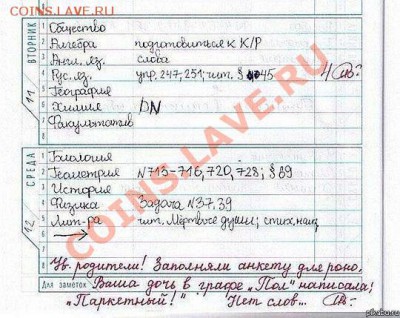 COINS.LAVE.RU
ВТОРНИК
11
1 Общество
2 Алгебра подготовиться к К/Р
3 Англ. яз. слова
4 Рус. яз. упр. 247, 251; чит. § 45
5 География
6 Химия
7 Факультатив
8
СРЕДА
12
1 Биология
2 Геометрия N 715-716, 720, 728; § 89
3 История
4 Физика Задача N 37, 39
5 Лит-ра чит. Мёртвые души; стих. наиз.
6
7
8 Ув. родители! Заполняли анкету для роно.
Для заметок Ваша дочь в графе „Пол" написала:
„Паркетный!" Нет слов...
COINS.LAVE.RU
pikabu.ru